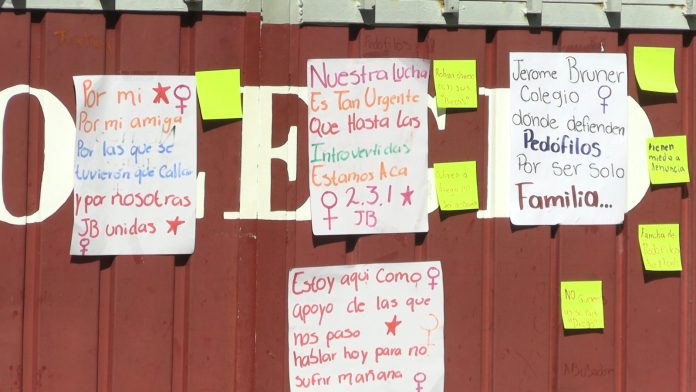 Por mi
Por mi amiga
Por las que se
tuvierón que Callar
y por nosotras
JB unidas
Nuestra Lucha
Es Tan Urgente
Que Hasta Las
Introvertidas
Estamos Aca
2.3.1
JB
Jerome Bruner
Colegio
donde defienden
Pedófilos
Por ser solo
Familia...
Estoy aqui Como
apoyo de las que
nos paso
hablar hoy para no
sufrir mañana
tienen
miedo a
denuncia
Familia de
Pedofilos
NO
"Diego"